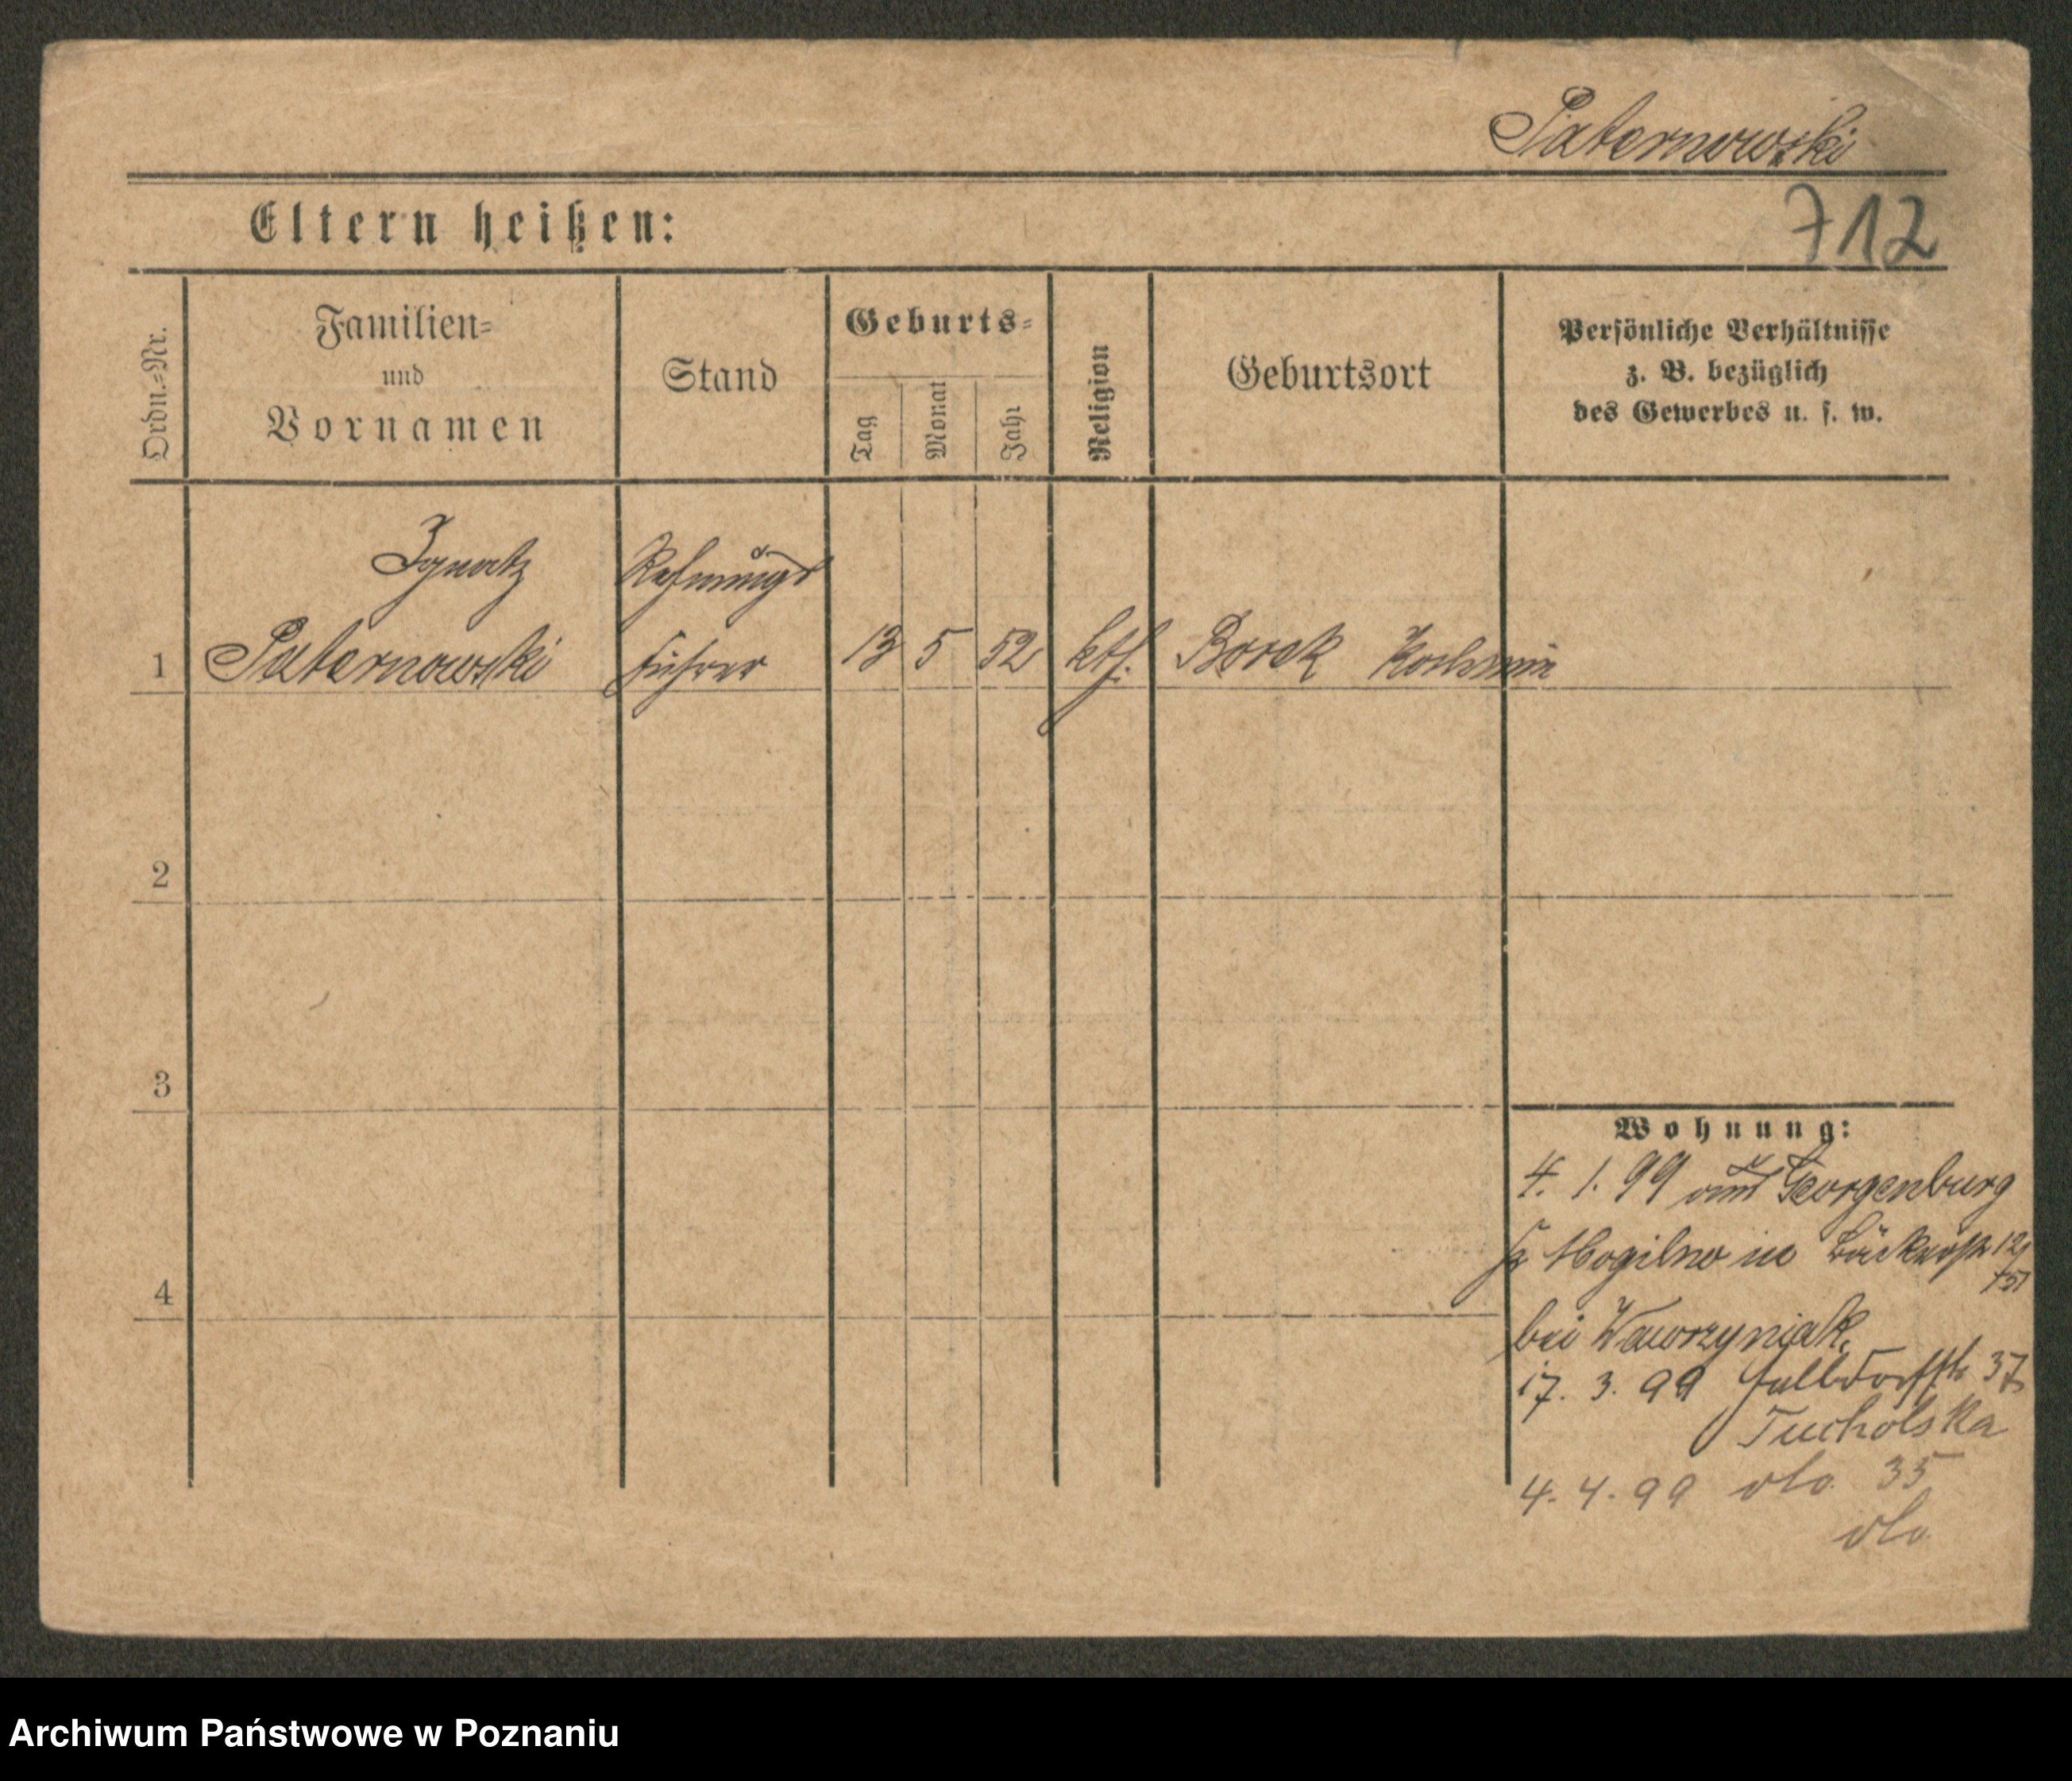 Paternowski
712
Eltern heißen:
Ordn.=Nr.
Familien=
und
Vornamen
Stand
Geburts=
Tag
Monat
Jahr
Religion
Geburtsort
Persönliche Verhältnisse
z. B. bezüglich
des Gewerbes u. s. w.
Ignatz
Rechnungs
1 Paternowski führer 13 5 52 kth. Borek Koschmin
2
3
4
Wohnung:
4. 1. 99 aus Georgenburg
Kr Mogilno in Bäckerstr 12/
bei Wawrzyniak.
17. 3. 99 Halbdorfstr 37
Tucholska
4. 4. 99 dto. 35
dto
Archiwum Państwowe w Poznaniu